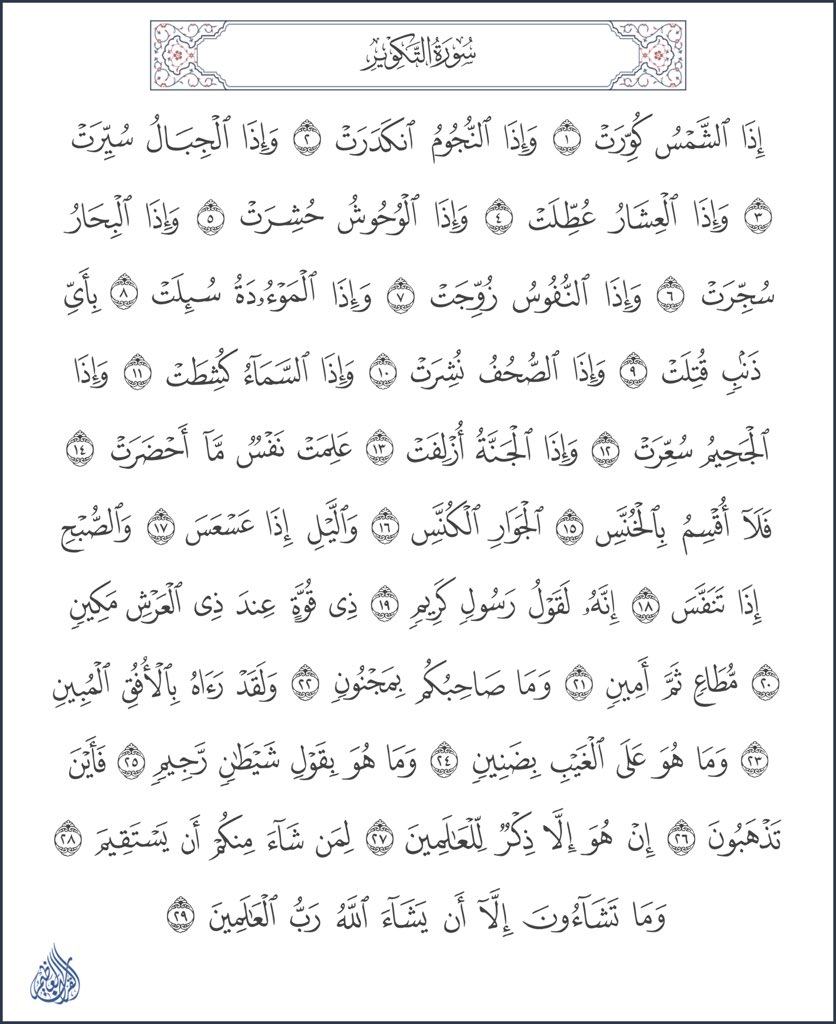 سُورَةُ التَّكْوِيرِ
إِذَا ٱلشَّمْسُ كُوِّرَتْ ١ وَإِذَا ٱلنُّجُومُ ٱنكَدَرَتْ ٢ وَإِذَا ٱلْجِبَالُ سُيِّرَتْ
٣ وَإِذَا ٱلْعِشَارُ عُطِّلَتْ ٤ وَإِذَا ٱلْوُحُوشُ حُشِرَتْ ٥ وَإِذَا ٱلْبِحَارُ
سُجِّرَتْ ٦ وَإِذَا ٱلنُّفُوسُ زُوِّجَتْ ٧ وَإِذَا ٱلْمَوْءُۥدَةُ سُئِلَتْ ٨ بِأَىِّ
ذَنۢبٍ قُتِلَتْ ٩ وَإِذَا ٱلصُّحُفُ نُشِرَتْ ١٠ وَإِذَا ٱلسَّمَآءُ كُشِطَتْ ١١ وَإِذَا
ٱلْجَحِيمُ سُعِّرَتْ ١٢ وَإِذَا ٱلْجَنَّةُ أُزْلِفَتْ ١٣ عَلِمَتْ نَفْسٌ مَّآ أَحْضَرَتْ ١٤
فَلَآ أُقْسِمُ بِٱلْخُنَّسِ ١٥ ٱلْجَوَارِ ٱلْكُنَّسِ ١٦ وَٱلَّيْلِ إِذَا عَسْعَسَ ١٧ وَٱلصُّبْحِ
إِذَا تَنَفَّسَ ١٨ إِنَّهُۥ لَقَوْلُ رَسُولٍ كَرِيمٍ ١٩ ذِى قُوَّةٍ عِندَ ذِى ٱلْعَرْشِ مَكِينٍ
٢٠ مُّطَاعٍ ثَمَّ أَمِينٍ ٢١ وَمَا صَاحِبُكُم بِمَجْنُونٍ ٢٢ وَلَقَدْ رَءَاهُ بِٱلْأُفُقِ ٱلْمُبِينِ
٢٣ وَمَا هُوَ عَلَى ٱلْغَيْبِ بِضَنِينٍ ٢٤ وَمَا هُوَ بِقَوْلِ شَيْطَٰنٍ رَّجِيمٍ ٢٥ فَأَيْنَ
تَذْهَبُونَ ٢٦ إِنْ هُوَ إِلَّا ذِكْرٌ لِّلْعَٰلَمِينَ ٢٧ لِمَن شَآءَ مِنكُمْ أَن يَسْتَقِيمَ ٢٨
وَمَا تَشَآءُونَ إِلَّآ أَن يَشَآءَ ٱللَّهُ رَبُّ ٱلْعَٰلَمِينَ ٢٩
القرآن العظيم